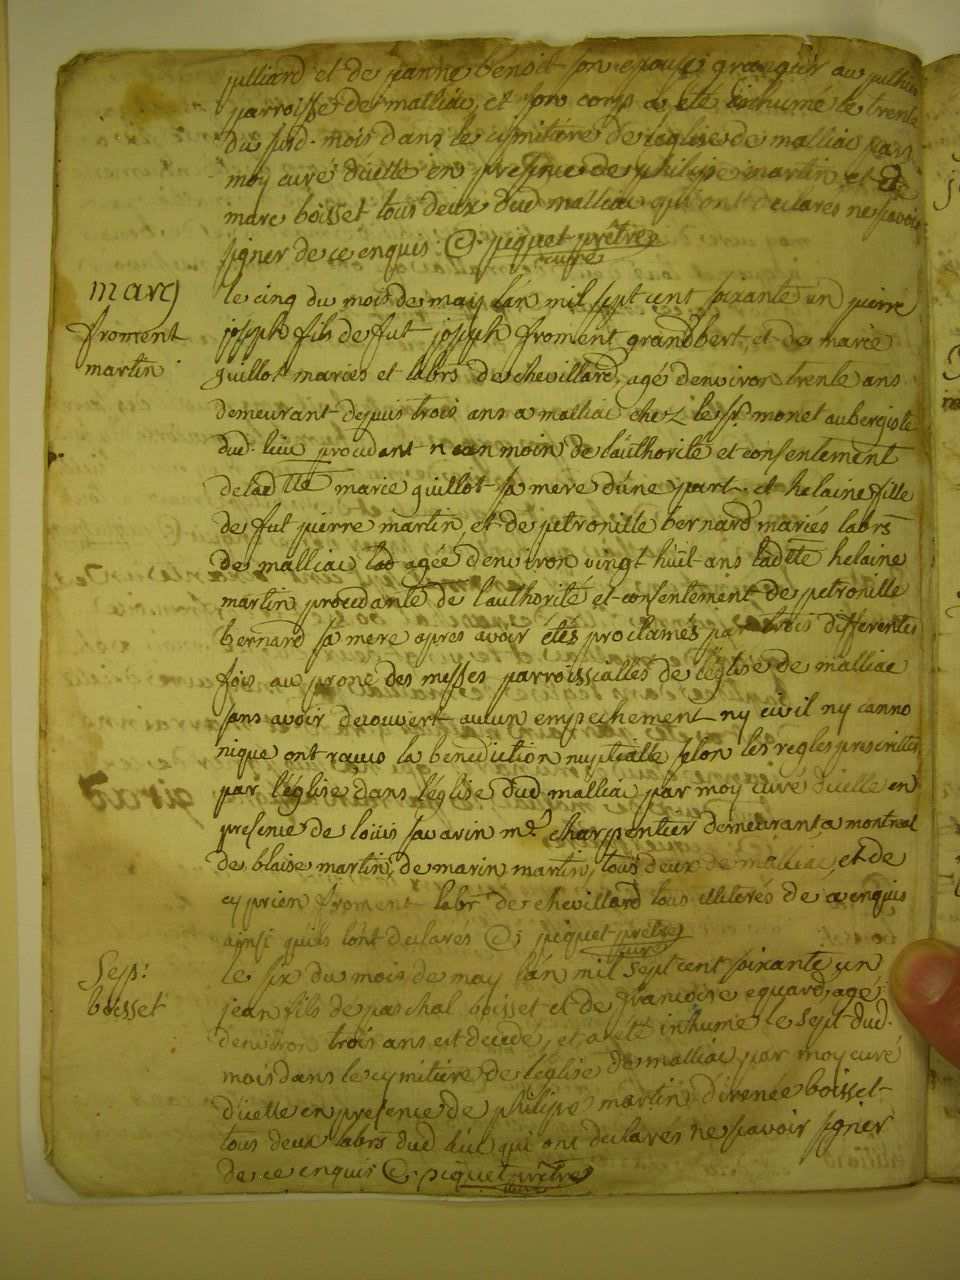 julliard et de jeanne benoit son epouse granger au
parroisse de malliac, et son corps a été inhumé le trente
du susd. mois dans le cymitiére de l'église de malliac par
moy curé d'icelle en presence de philipe martin et de
marc boisset tous deux dud malliac qui ont declarés ne scavoir
signer de ce enquis. C. piquet prêtre
curé
marg
froment
martin
le cinq du mois de may l'an mil sept cent soixante un pierre
joseph fils de fut joseph froment grandbert et de marie
guillot mariés et labrs de chevillard, agé d'environ trente ans
demeurant depuis trois ans a malliac chez le sr. monet aubergiste
dud. lieu procedant neanmoin de l'authorité et consentement
de lad tte marie guillot sa mere d'une part. et helaine fille
de fut pierre martin et de petronille bernard mariés labrs
de malliac lad agée d'environ vingt huit ans lad tte helaine
martin procedante de l'authorité et consentement de petronille
bernard sa mere apres avoir étés proclamés par trois differentes
fois au prone des messes parroissialles de l'église de malliac
sans avoir decouvert aucun empechement ny civil ny canno
nique ont recus la benediction nuptialle selon les regles prescrittes
par l'église dans l'église dud malliac par moy curé d'icelle en
presence de loüis savarin me. charpentier demeurant a montreal
de blaise martin, de marin martin, tous deux de malliac, et de
cyprien froment labr de chevillard tous illiterés de ce enquis
ainsi quils l'ont declarés C; piquet prêtre
curé
Sep:
boisset
le six du mois de may l'an mil sept cent soixante un
jean fils de paschal boisset et de francoise eguard, agé
d'environ trois ans est decedé, et a été inhumé le sept dud.
mois dans le cymitiére de l'église de malliac par moy curé
d'icelle en presence de philipe martin d'irenée boisset
tous deux labrs dud lieu qui ont declarés ne scavoir signer
de ce enquis C. piquet prêtre
curé